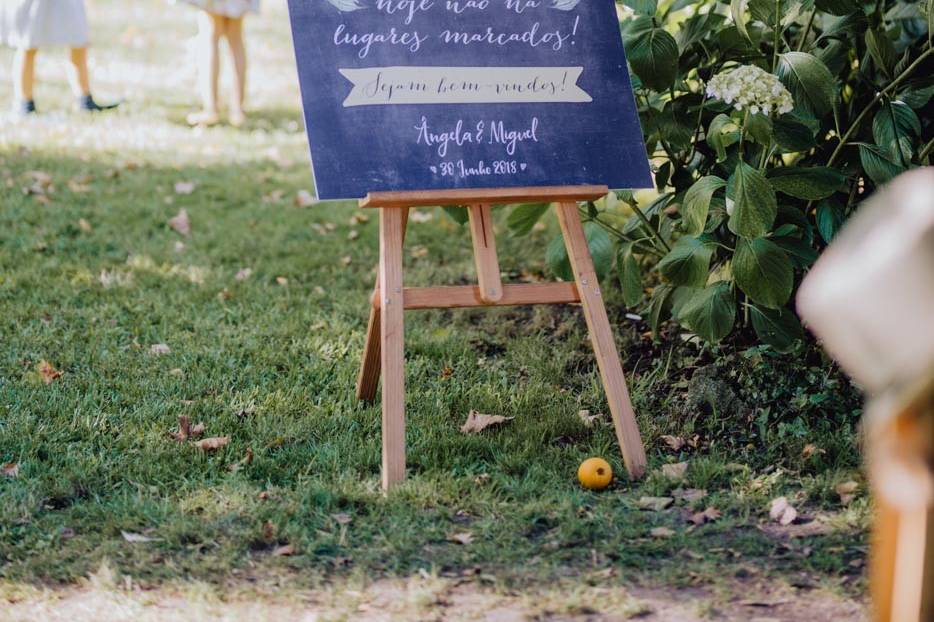 hoje não há
lugares marcados!
Sejam bem-vindos!
Ângela & Miguel
30 Junho 2018